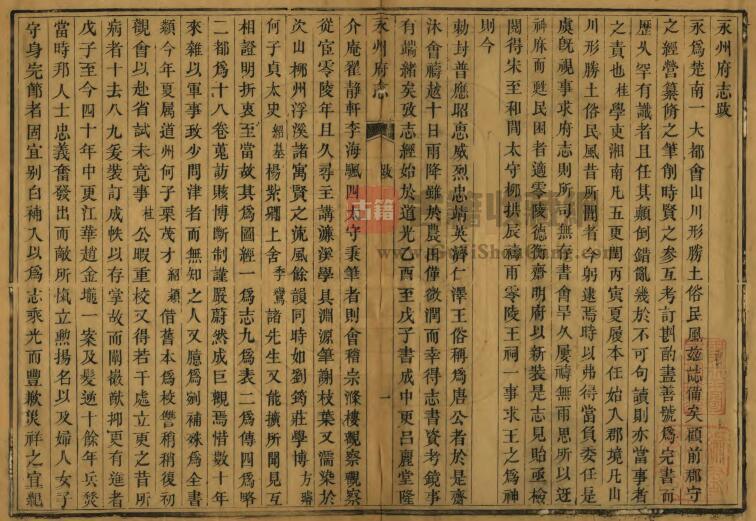 永州府志跋
永爲楚南一大都會山川形勝土俗民風茲誌備矣顧前郡守
之經營纂脩之筆創時賢之參互考訂斟酌盡善號爲完書而
歷久罕有識者且任其顛倒錯亂幾於不可句讀則亦當事者
之責也桂學吏湘南凡五更閏丙寅夏履本任始入郡境凡山
川形勝土俗民風昔所聞者今躬逮焉時以弗得當負委任是
虞旣視事求府志則所司無存書會旱久屢禱無雨思所以迓
神庥而甦民困者適零陵德衡齋明府以新裝是志見貽亟檢
閱得宋至和間太守柳拱辰禱雨零陵王祠一事求王之爲神
則今
勅封普應昭惠威烈忠靖英濟仁澤王俗稱爲唐公者於是齋
沐會禱越十日雨降雖於農田僅微潤而幸得志書資考鏡事
有端緒矣攷志經始於道光乙酉至戊子書成中更呂麗堂隆
永州府志
跋
一
介庵翟靜軒李海颿四太守秉筆者則會稽宗滌樓觀察觀察
從宦零陵年且久尋主講濂溪學具淵源筆謝枝葉又濡染於
次山柳州浮溪諸寓賢之流風餘韻同時如劉筠莊學博方璿
何子貞太史紹基楊紫卿上舍季鸞諸先生又能擴所聞見互
相證明折衷至當故其爲圖經一爲志九爲表二爲傳四爲略
二都爲十八卷蒐訪賅博斷制謹嚴蔚然成巨觀焉惜數十年
來雜以軍事政少問津者而無知之人又臆爲剜補殊爲全書
纇今年夏屬道州何子栗茂才紹纇借舊本爲校讐稍稍復初
觀會以赴省試未竟事桂公暇重校又得若干處立更之昔所
病者十去八九爰裝訂成帙以存掌故而闡嚴猷抑更有進者
戊子至今四十年中更江華趙金壠一案及髮逆十餘年兵燹
當時邦人士忠義奮發出而敵所愾立勲揚名以及婦人女子
守身完節者固宜別白補入以爲志乘光而豐歉災祥之宜紀